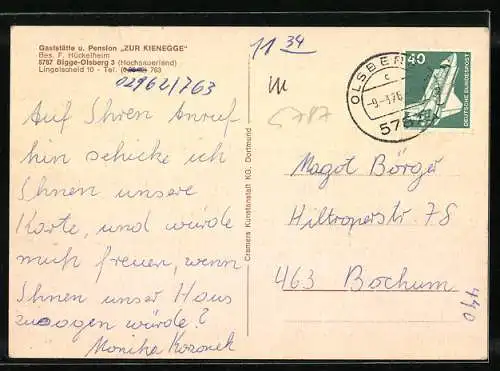 Gaststätte u. Pension „ZUR KIENEGGE"
Bes. F. Hückelheim
5787 Bigge-Olsberg 3 (Hochsauerland)
Lingelscheid 10 - Tel. 763
02962/763
Auf Ihren Anruf
hin schicke ich
Ihnen unsere
Karte, und würde
mich freuen, wenn
Ihnen unser Haus
zusagen würde?
Monika
Cramers Kunstanstalt KG. Dortmund
11 34
5787
OLSBERG
c
578
40
DEUTSCHE BUNDESPOST
Magot Börger
Hiltroperstr 78
463 Bochum
440